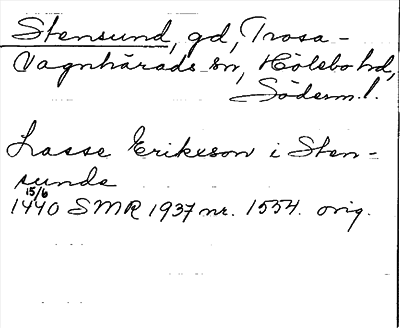 Stensund, gd, Trosa-
Vagnhärads sn, Hölebo hd,
Söderm.l.
Lasse Erikeson i Sten-
sunde
15/6
1440 SMR 1937 nr. 1554. orig.